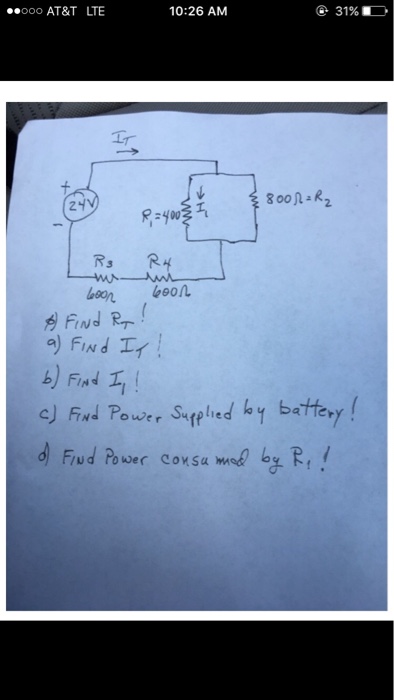 ●●○○○ AT&T LTE 10:26 AM 31%
I_T
+
24V
-
R₁=400
I₁
800Ω=R₂
R₃ R₄
600Ω 600Ω
FINd R_T!
a) FINd I_T!
b) FINd I₁!
c) FINd Power Supplied by battery!
d) FINd Power consumed by R₁!